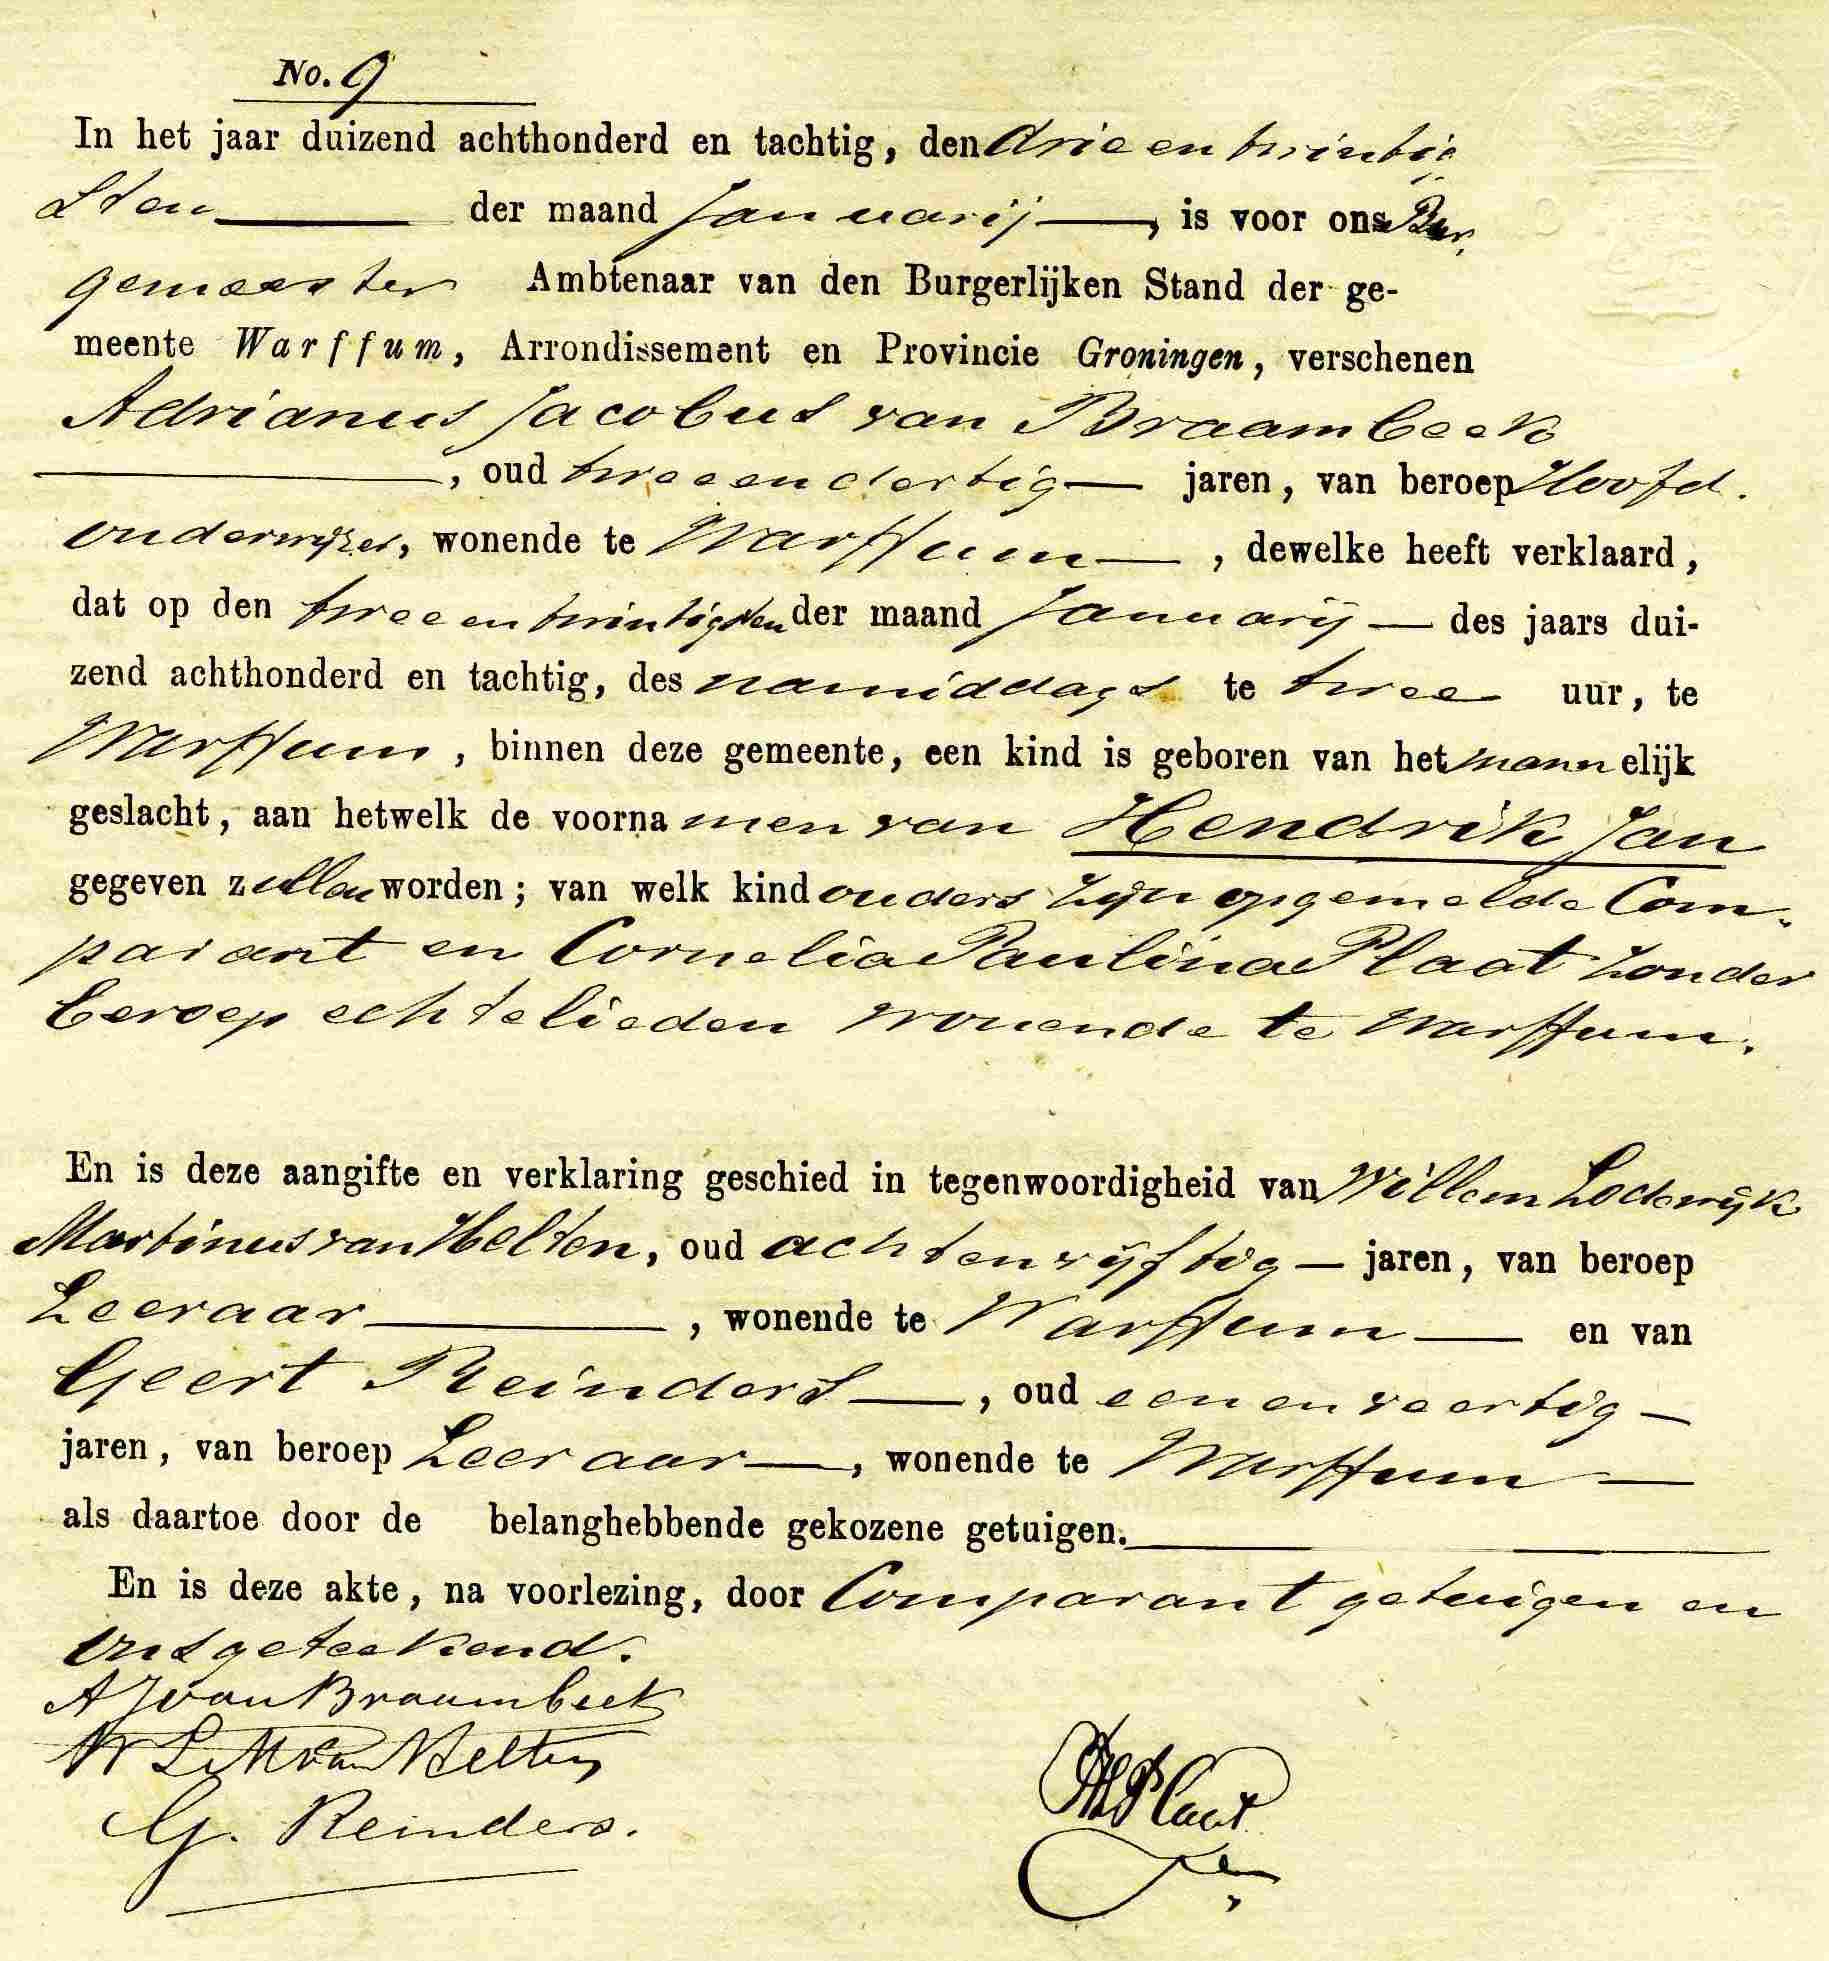 No. 9
In het jaar duizend achthonderd en tachtig, den drie en twintig
sten der maand Januarij, is voor ons Bur,
gemeester Ambtenaar van den Burgerlijken Stand der ge-
meente Warffum, Arrondissement en Provincie Groningen, verschenen
Adrianus Jacobus van Braambeek
, oud twee en dertig jaren, van beroep Hoofd.
onderwijzer, wonende te Warffum, dewelke heeft verklaard,
dat op den twee en twintigsten der maand Januarij des jaars dui-
zend achthonderd en tachtig, des namiddags te twee uur, te
Warffum, binnen deze gemeente, een kind is geboren van het mannelijk
geslacht, aan hetwelk de voornamen van Hendrik Jan
gegeven zullen worden; van welk kind ouders zijn opgemelde Com-
parant en Cornelia Paulina Plaat zonder
beroep echtelieden wonende te Warffum.
En is deze aangifte en verklaring geschied in tegenwoordigheid van Willem Lodewijk
Martinus van Helten, oud acht en vijftig jaren, van beroep
Leeraar, wonende te Warffum en van
Geert Reinders, oud een en veertig
jaren, van beroep Leeraar, wonende te Warffum
als daartoe door de belanghebbende gekozene getuigen.
En is deze akte, na voorlezing, door Comparant getuigen en
ons geteekend.
A J van Braambeek
W L M van Helten
G. Reinders.
Plaat